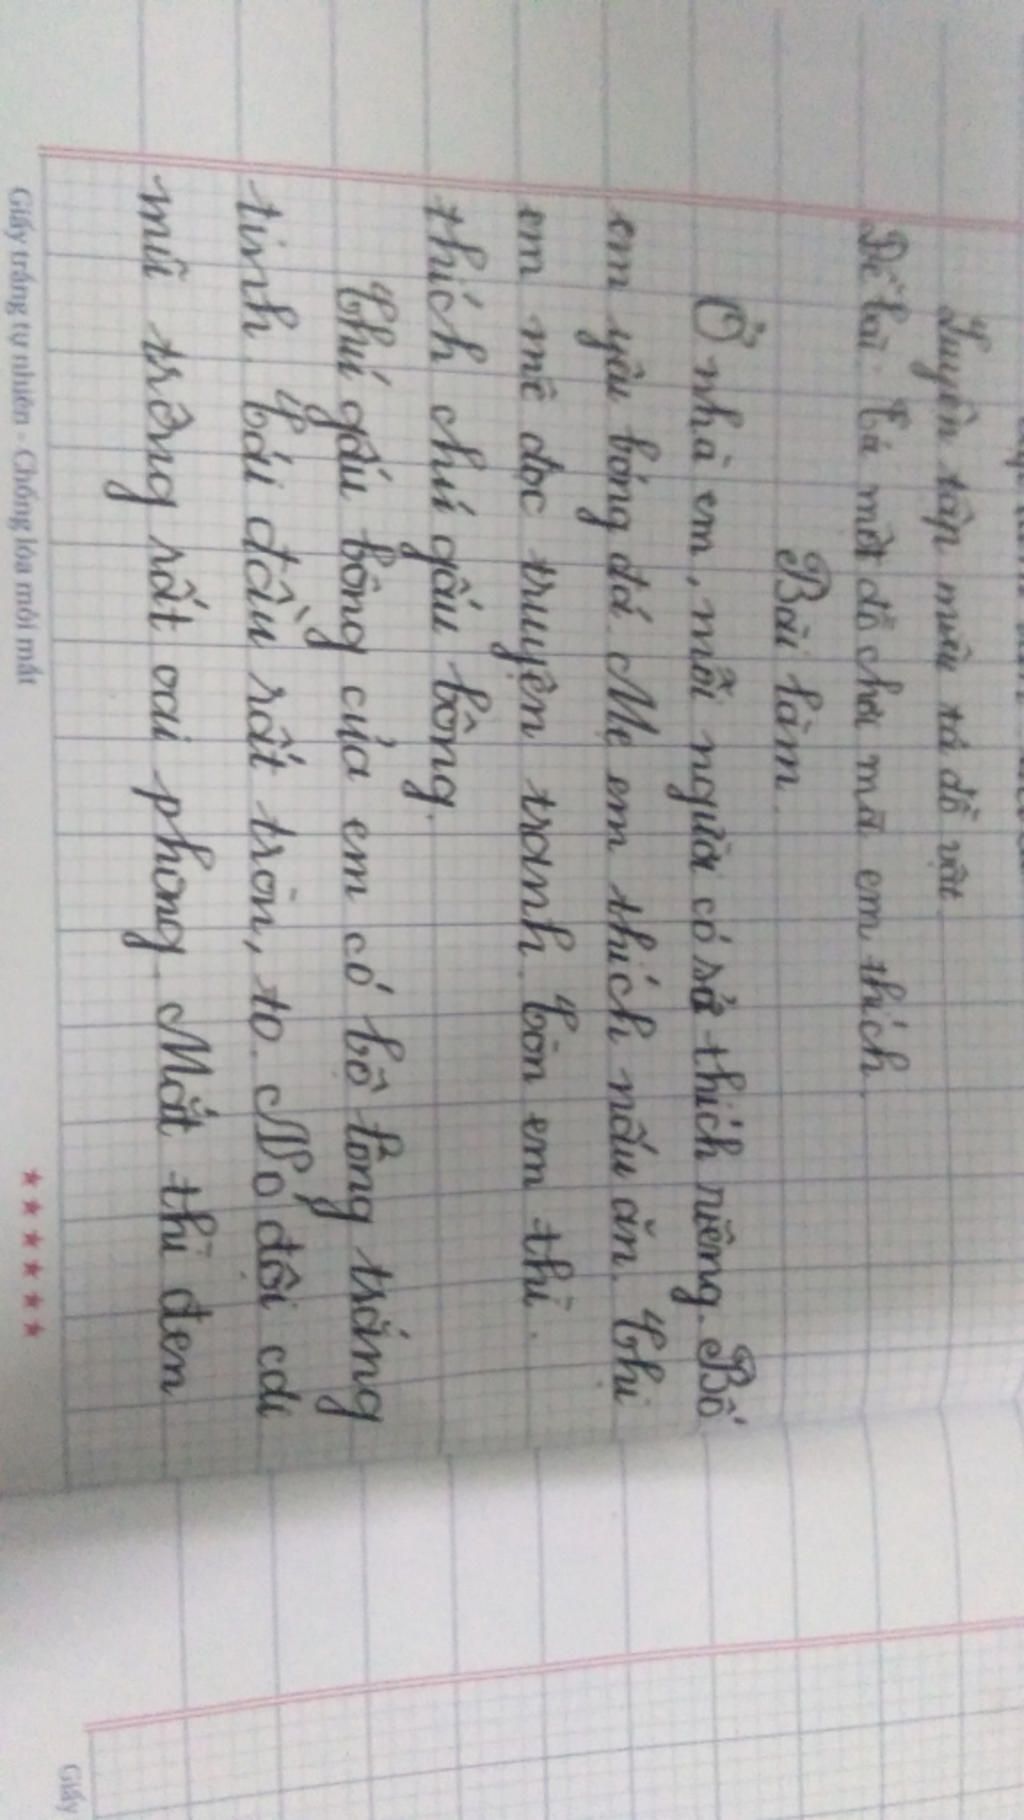 Luyện tập miêu tả đồ vật
Đề bài: Tả một đồ chơi mà em thích.
Bài làm.
Ở nhà em, mỗi người có sở thích riêng. Bố
em yêu bóng đá. Mẹ em thích nấu ăn. Chị
em mê đọc truyện tranh. Còn em thì.
thích chú gấu bông.
Chú gấu bông của em có bộ lông trắng
tinh. Cái đầu rất tròn, to. Nó đội cái
mũ trông rất oai phong. Mắt thì đen
Giấy trắng tự nhiên - Chống lóa mỏi mắt
Giấy